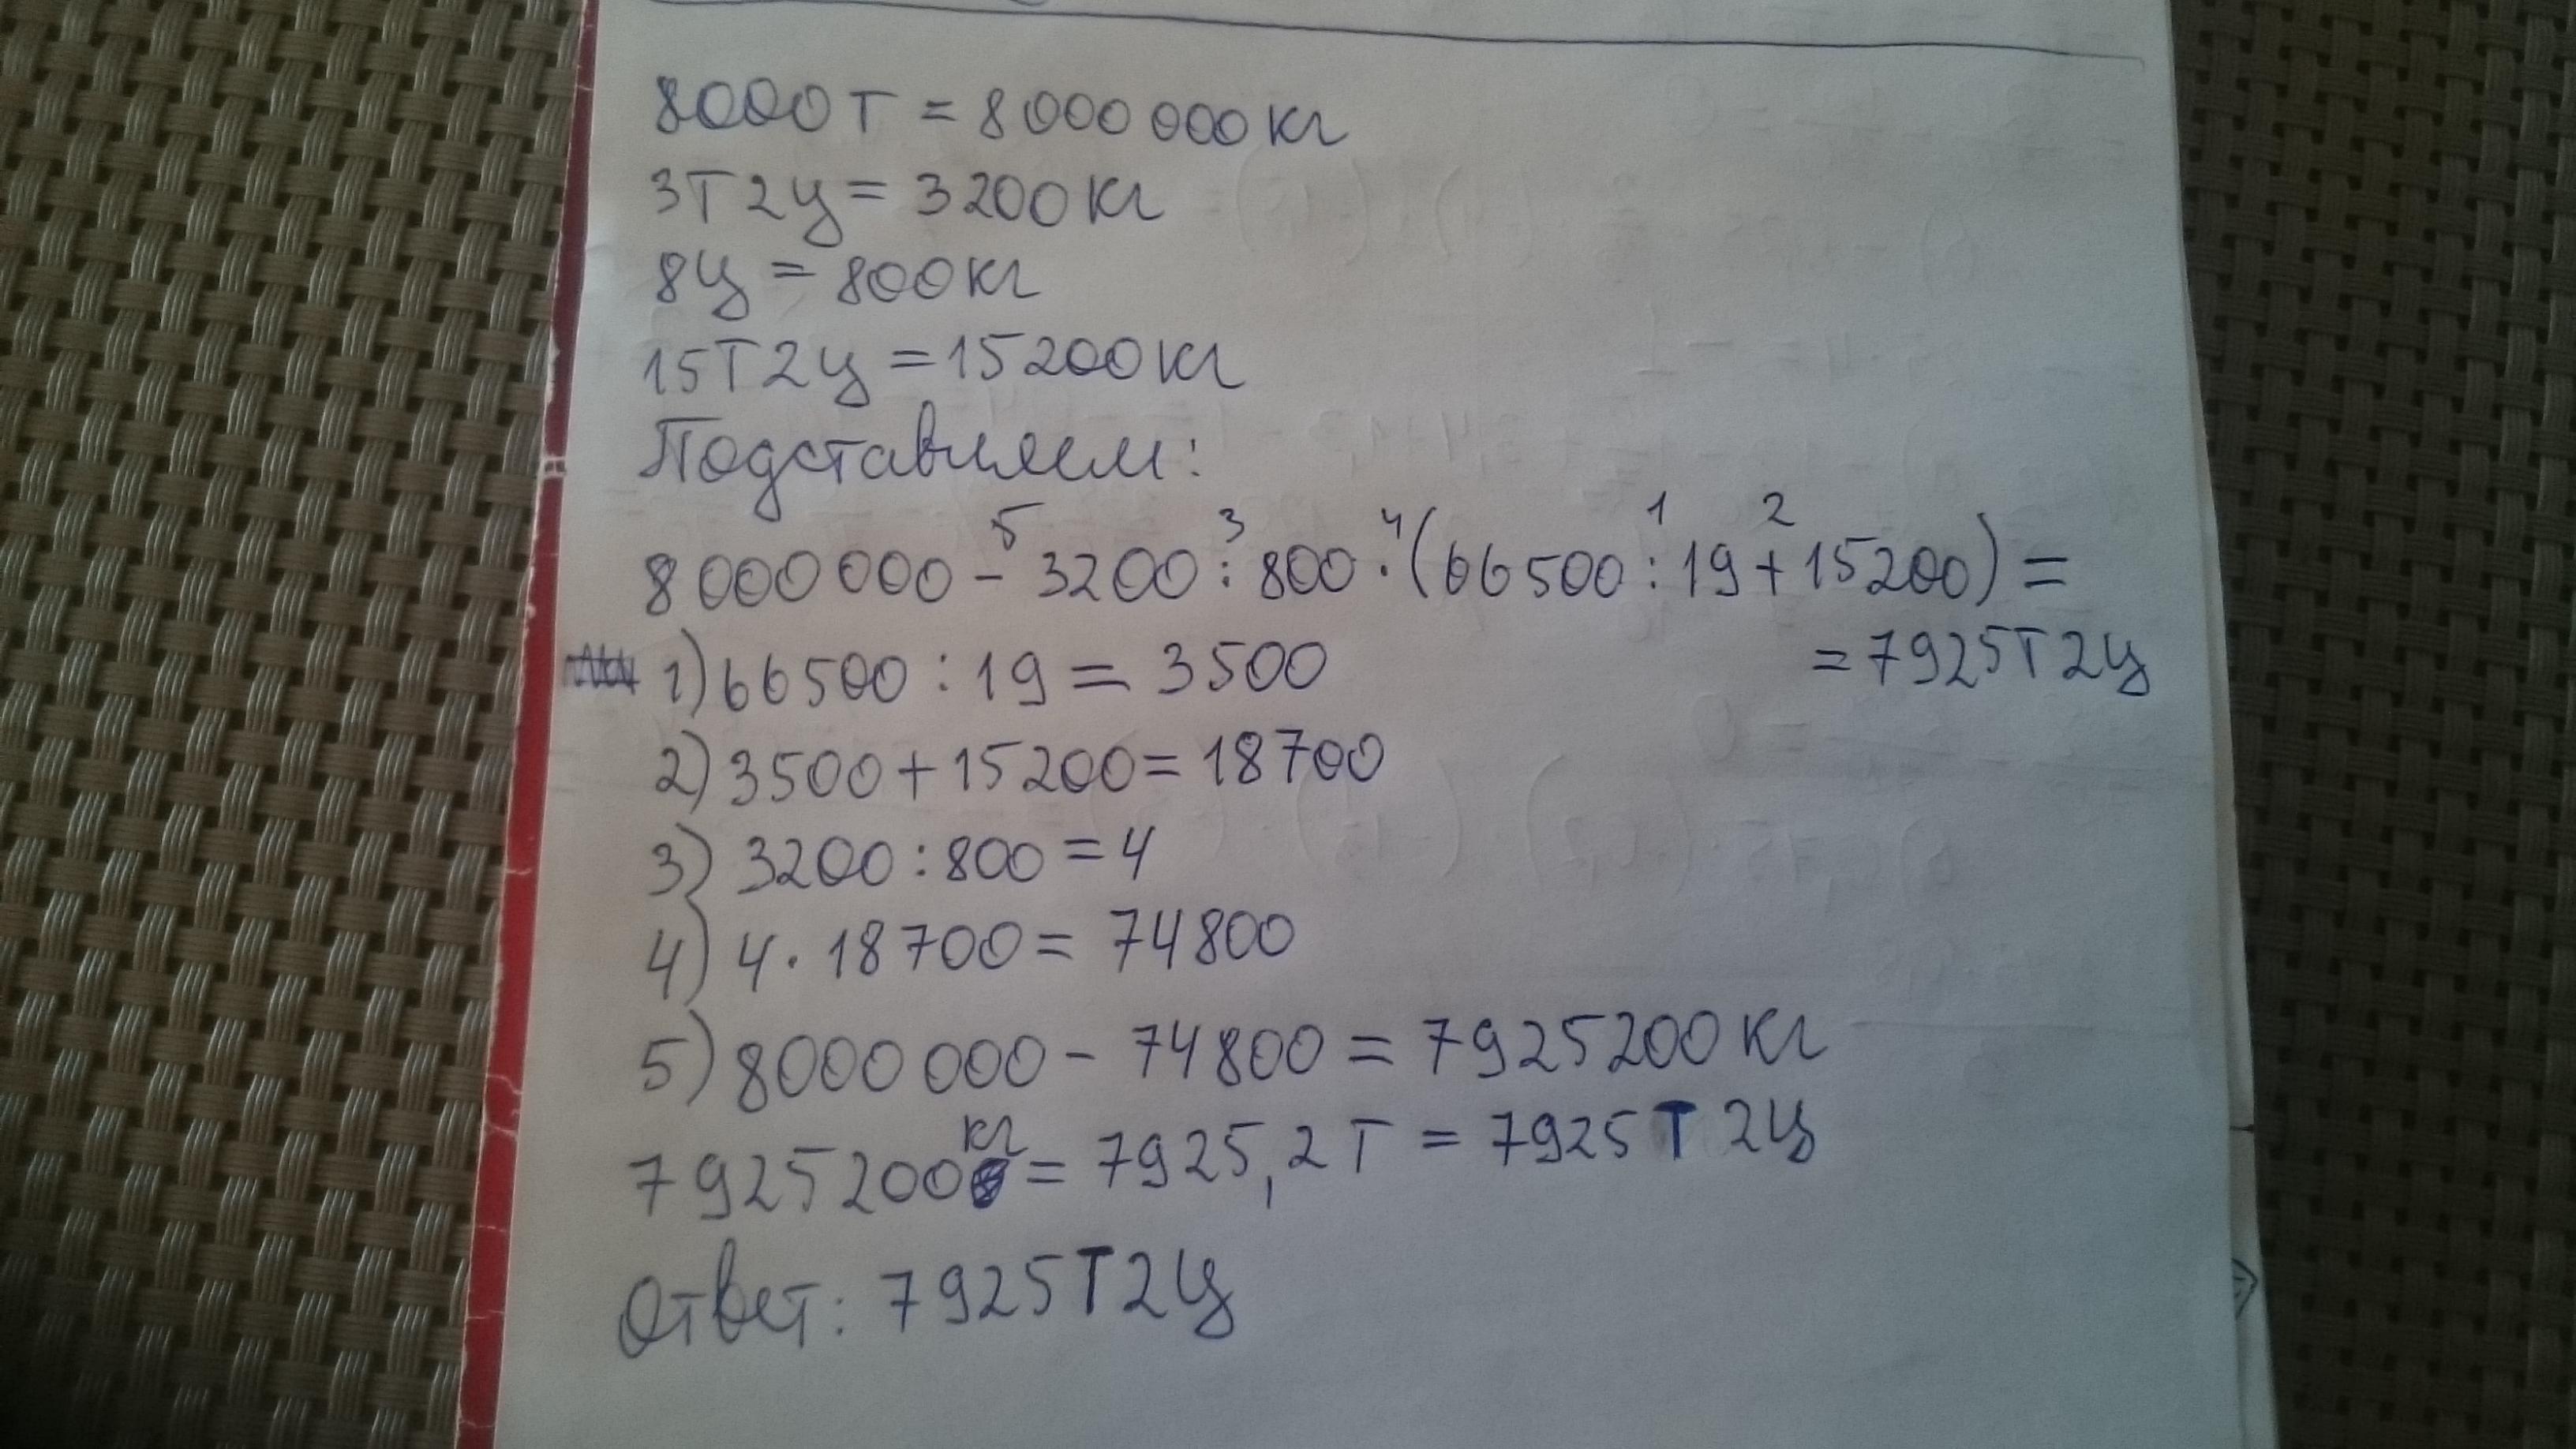 8000т = 8000 000 кг
3т 2ц = 3200 кг
8ц = 800 кг
15т 2ц = 15200 кг
Подставляем:
5 3 4 1 2
8 000 000 - 3200 : 800 · (66500 : 19 + 15200) =
= 7925т 2ц
1) 66500 : 19 = 3500
2) 3500 + 15200 = 18700
3) 3200 : 800 = 4
4) 4 · 18700 = 74800
5) 8000 000 - 74800 = 7925200 кг
7925200 кг = 7925,2 т = 7925 т 2ц
Ответ: 7925т 2ц